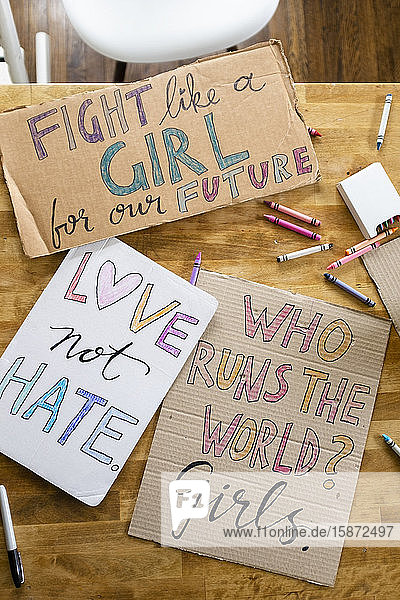 FIGHT like a
GIRL
for our FUTURE
LOVE
not
HATE.
WHO
RUNS THE
WORLD?
Girls.
F1 online
© 15872497